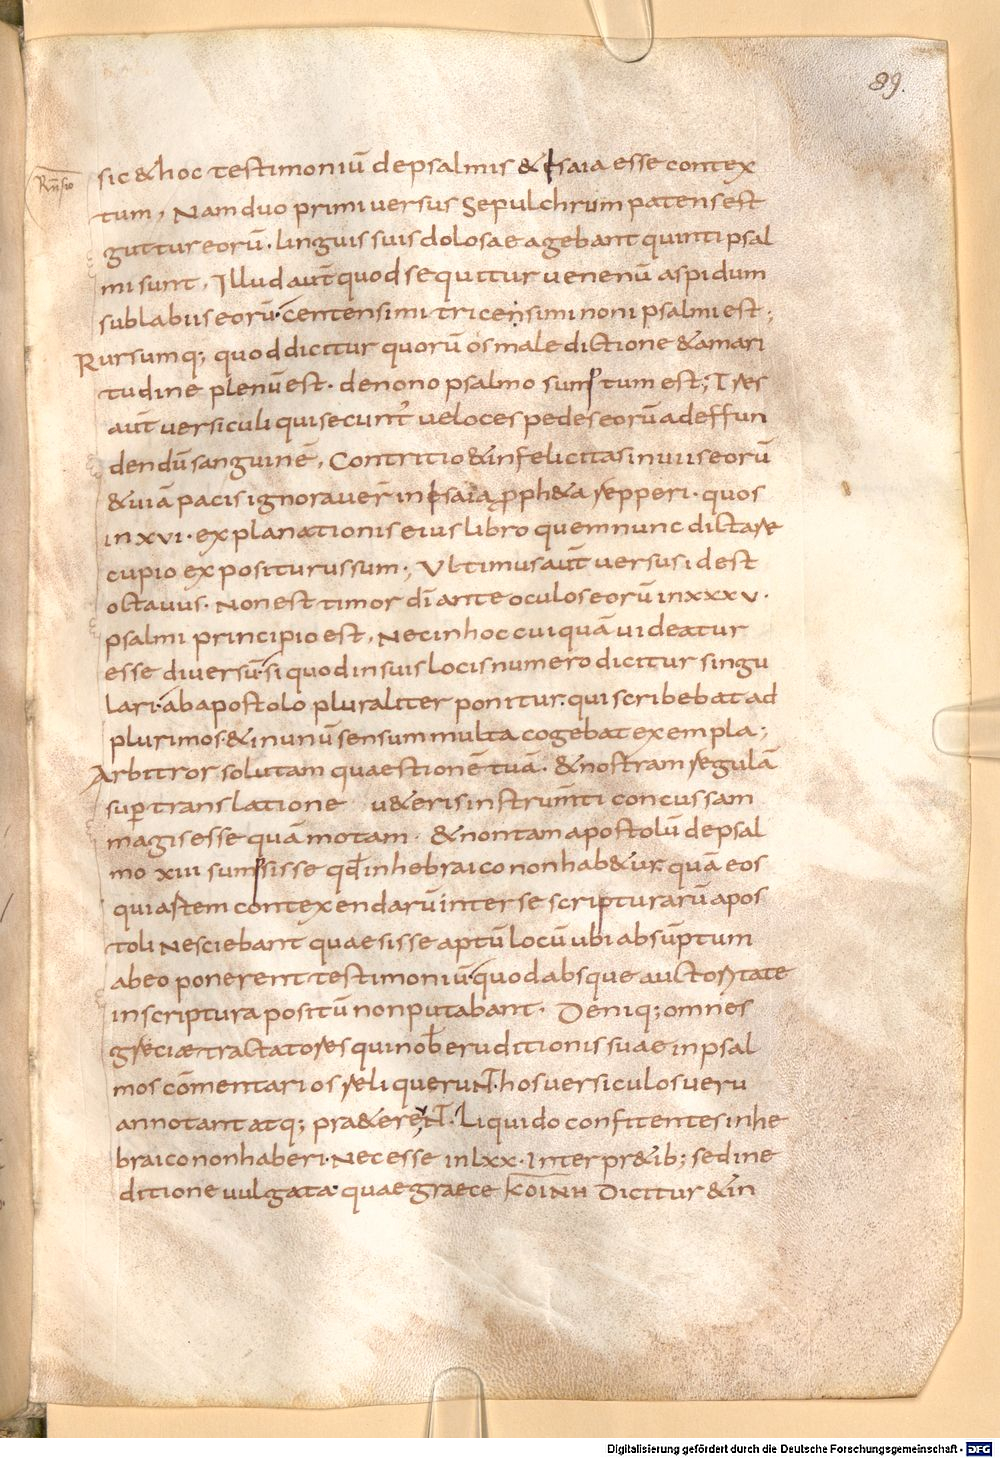 89.
sic & hoc testimoniū de psalmis & Isaia esse contex
tum, Nam duo primi versus Sepulchrum patens est
guttur eorū. linguis suis dolosae agebant quinti psal
mi sunt, Illud aut̄ quod sequitur venenū aspidum
sub labiis eorū. Centensimi tricensimi noni psalmi est;
Rursumq; quod dicitur quorū os maledictione & amari
tudine plenū est. de nono psalmo sumptum est; Tres
aut̄ versiculi qui secunt᷒ veloces pedes eorū ad effun
dendū sanguinē, Contritio & infelicitas in viis eorū
& viā pacis ignoraver̄ in Isaia proph&a repperi. quos
in xvi. explanationis eius libro quem nunc dictare
cupio expositurus sum; Ultimus aut̄ versus id est
octavus. Non est timor dī ante oculos eorū in xxxv.
psalmi principio est, Nec in hoc cuiquā videatur
esse diversū. si quod in suis locis numero dicitur singu
lari. ab apostolo pluraliter ponitur. qui scribebat ad
plurimos & in unū sensum multa cogebat exempla;
Arbitror solutam quaestionē tuā. & nostram regulā
sup̄ translatione v&eris instrum̄ti concussam
magis esse quā motam. & non tam apostolū de psal
mo xiii sumpsisse qd̄ in hebraico non hab&ur quā eos
qui artem contexendarū inter se scripturarū apos
toli nesciebant quaesisse aptū locū ubi absūptum
ab eo ponerent testimoniū. quod absque auctoritate
in scriptura positū non putabant. Deniq; omnes
greciæ tractatores qui nob̄ eruditionis suae in psal
mos cōmentarios reliquerunt. hos versiculos veru
annotant atq; pra&ereuNT. Liquido confitentes in he
braico non haberi. Nec esse in lxx. Interpr&ib; sed in e
ditione vulgata. quae graece KOINH Dicitur & in
Digitalisierung gefördert durch die Deutsche Forschungsgemeinschaft - DFG